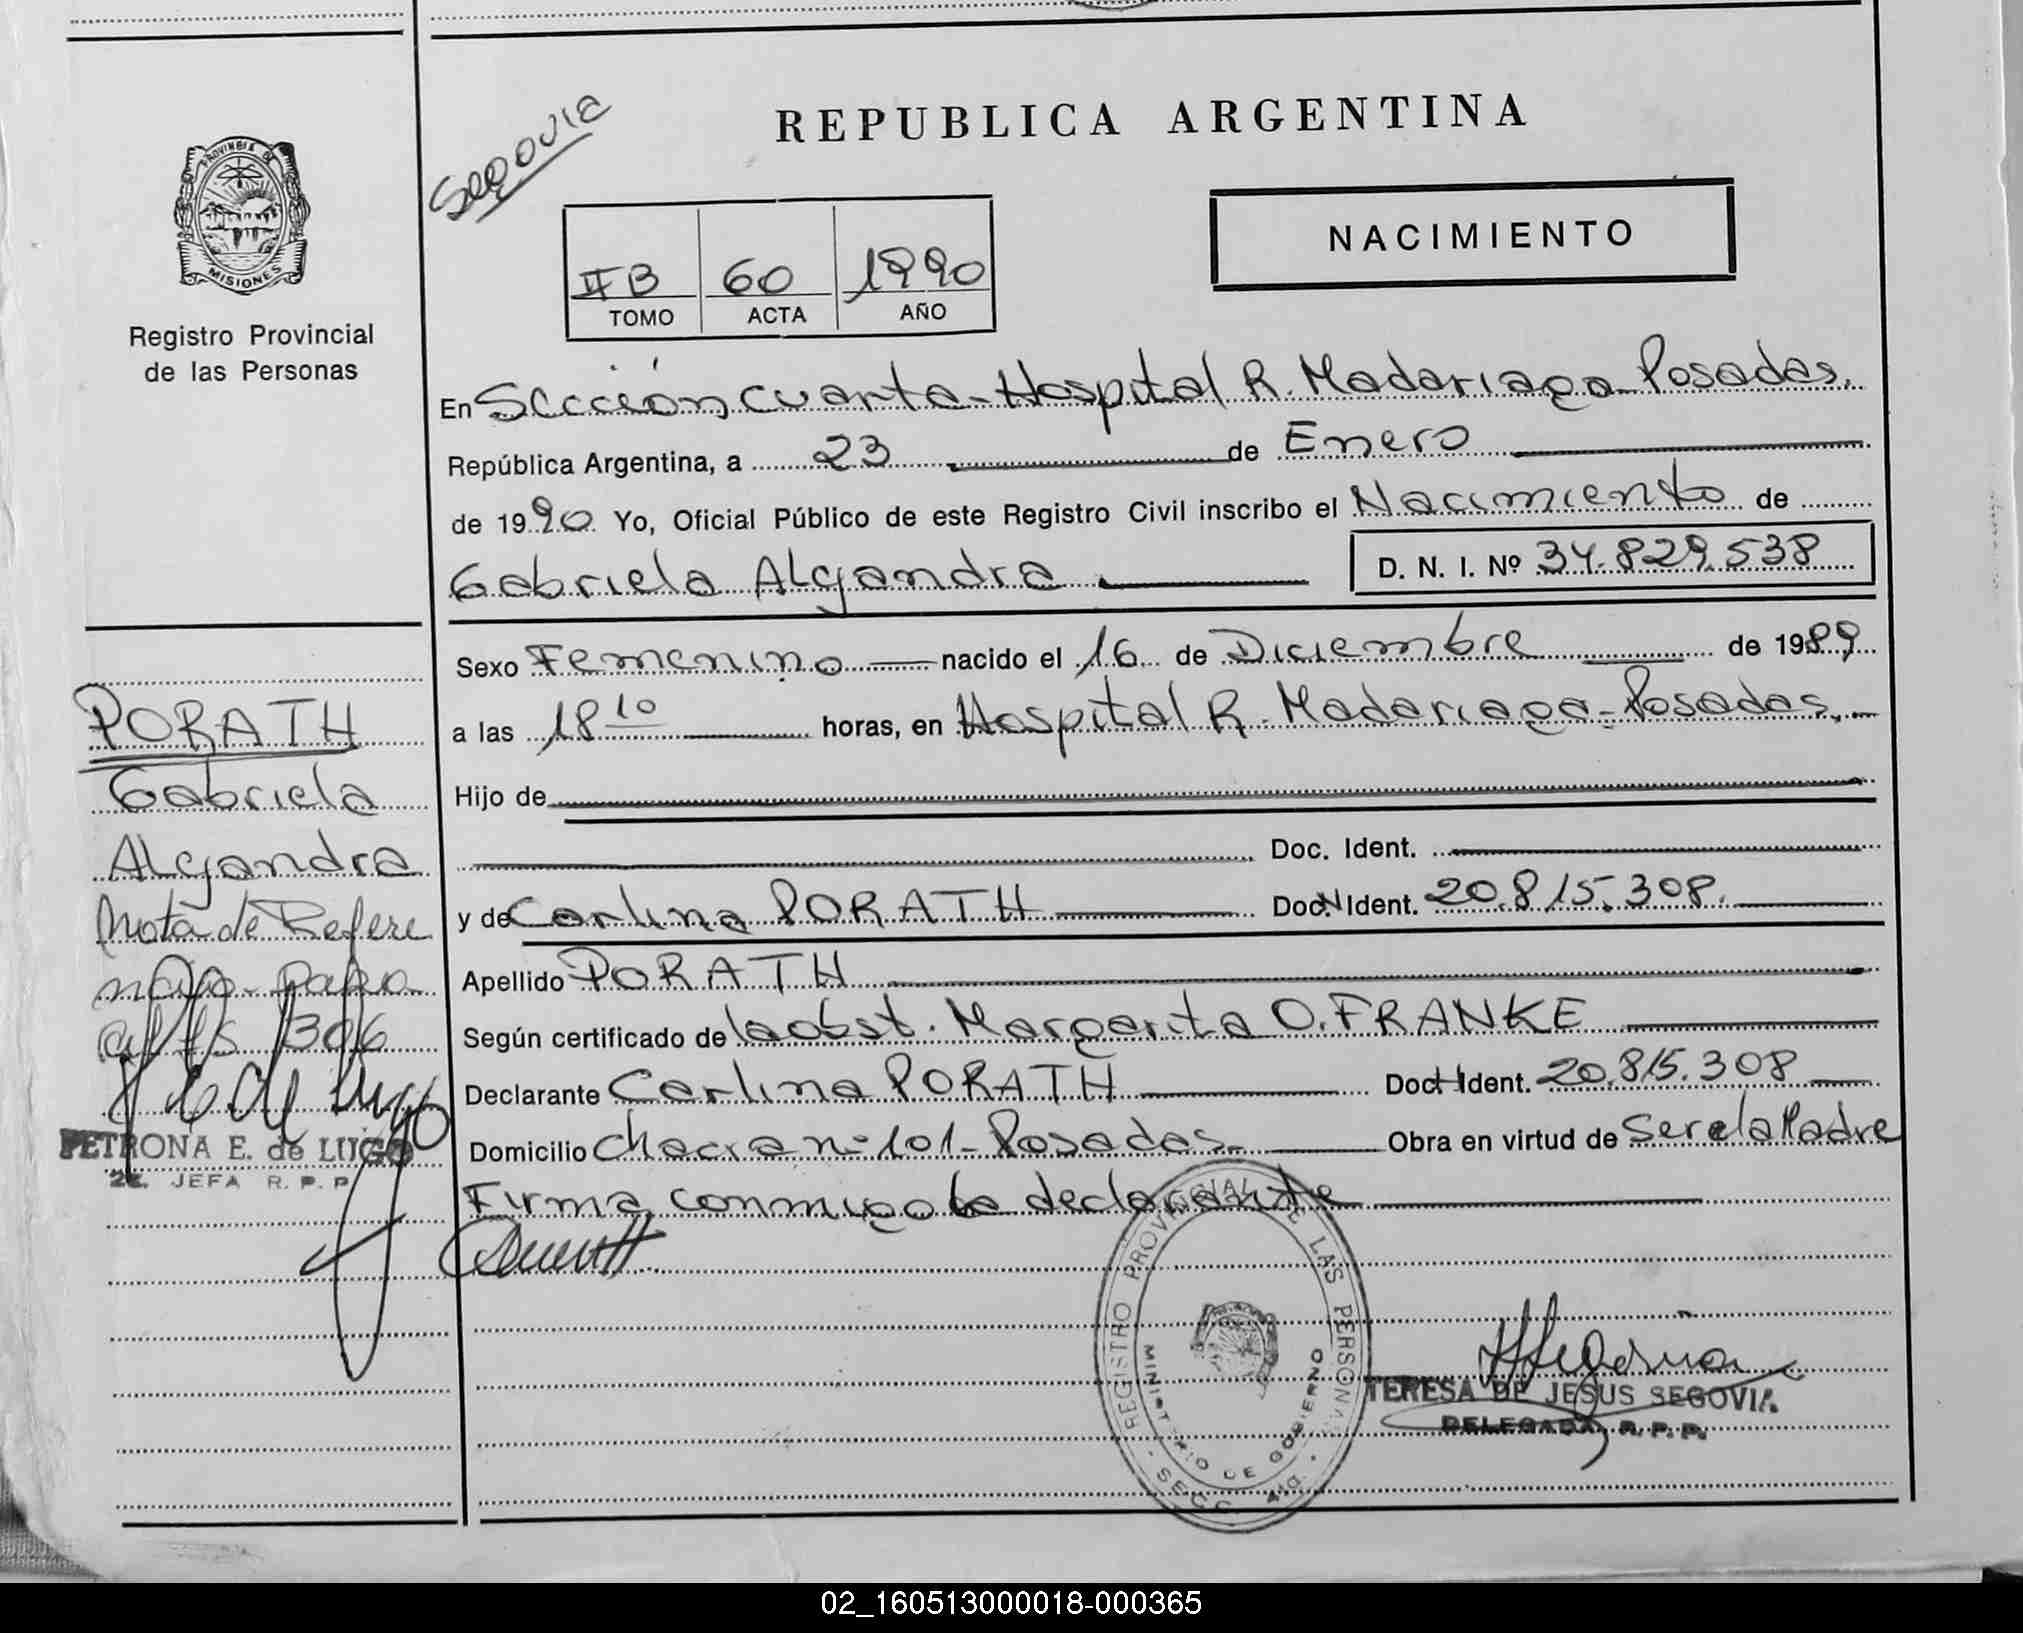 REPUBLICA ARGENTINA
Segovia
NACIMIENTO
II B 60 1990
TOMO ACTA AÑO
PROVINCIA DE
MISIONES
Registro Provincial
de las Personas
En Sección cuarta - Hospital R. Madariaga - Posadas.
República Argentina, a 23 de Enero
de 1990 Yo, Oficial Público de este Registro Civil inscribo el Nacimiento de
Gabriela Alejandra D. N. I. Nº 34.829.538
Sexo Femenino nacido el 16 de Diciembre de 1989
a las 18 10 horas, en Hospital R. Madariaga - Posadas.
Hijo de
Doc. Ident.
y de Carlina PORATH Doc. N Ident. 20.815.308.
Apellido PORATH
Según certificado de la obst. Margarita O. FRANKE
Declarante Carlina PORATH Doc. Ident. 20.815.308
Domicilio Chacra nº 101 - Posadas Obra en virtud de Ser la Madre
Firma conmigo la declarante
PORATH
Gabriela
Alejandra
Nota de Refere
306
PETRONA E. de LUGO
JEFA R. P. P.
REGISTRO PROVINCIAL DE LAS PERSONAS
MINISTERIO DE GOBIERNO
SECC. 4ta.
TERESA DE JESUS SEGOVIA
DELEGADA R. P. P.
02_160513000018-000365